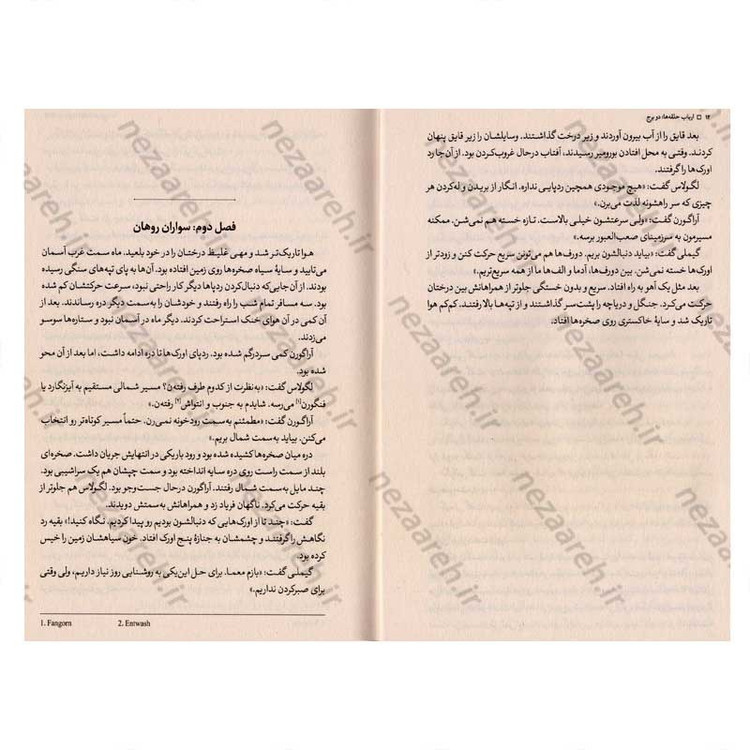 ۱۲ □ ارباب حلقه‌ها: دو برج
بعد قایق را از آب بیرون آوردند و زیر درخت گذاشتند. وسایلشان را زیر قایق پنهان
کردند. وقتی به محل افتادن بورومیر رسیدند، آفتاب درحال غروب‌کردن بود. از آن‌جا رد
اورک‌ها را گرفتند.
لگولاس گفت: «هیچ موجودی همچین ردپایی نداره. انگار از بریدن و له‌کردن هر
چیزی که سر راهشونه لذت می‌برن.»
آراگورن گفت: «ولی سرعتشون خیلی بالاست. تازه خسته هم نمی‌شن. ممکنه
مسیرمون به سرزمینای صعب‌العبور برسه.»
گیملی گفت: «بیاید دنبالشون بریم. دورف‌ها هم می‌تونن سریع حرکت کنن و زودتر از
اورک‌ها خسته نمی‌شن. بین دورف‌ها، آدما و الف‌ها ما از همه سریع‌تریم.»
بعد مثل یک آهو به راه افتاد. سریع و بدون خستگی جلوتر از همراهانش بین درختان
حرکت می‌کرد. جنگل و دریاچه را پشت‌سر گذاشتند و از تپه‌ها بالا رفتند. کم‌کم هوا
تاریک شد و سایهٔ خاکستری روی صخره‌ها افتاد.
فصل دوم: سواران روهان
هوا تاریک‌تر شد و مهی غلیظ درختان را در خود بلعید. ماه سمت غرب آسمان
می‌تابید و سایهٔ سیاه صخره‌ها روی زمین افتاده بود. آن‌ها به پای تپه‌های سنگی رسیده
بودند. از آن‌جایی‌که دنبال‌کردن ردپاها دیگر کار راحتی نبود، سرعت حرکتشان کم شده
بود. سه مسافر تمام شب را راه رفتند و خودشان را به‌سمت دیگر دره رساندند. بعد از
آن کمی در آن هوای خنک استراحت کردند. دیگر ماه در آسمان نبود و ستاره‌ها سوسو
می‌زدند.
آراگورن کمی سردرگم شده بود. ردپای اورک‌ها تا دره ادامه داشت، اما بعد از آن محو
شده بود.
لگولاس گفت: «به‌نظرت از کدوم طرف رفته‌ن؟ مسیر شمالی مستقیم به آیزنگارد یا
فنگورن[۱] می‌رسه. شایدم به جنوب و انتواش[۲] رفته‌ن.»
آراگورن گفت: «مطمئنم به‌سمت رودخونه نمی‌رن. حتماً مسیر کوتاه‌تر رو انتخاب
می‌کنن. بیاید به‌سمت شمال بریم.»
دره میان صخره‌ها کشیده شده بود و رود باریکی در انتهایش جریان داشت. صخره‌ای
بلند از سمت راست روی دره سایه انداخته بود و سمت چپشان هم یک سراشیبی بود.
چند مایل به‌سمت شمال رفتند. آراگورن درحال جست‌وجو بود. لگولاس هم جلوتر از
بقیه حرکت می‌کرد. ناگهان فریاد زد و همراهانش به‌سمتش دویدند.
گفت: «چند تا از اورک‌هایی که دنبالشون بودیم رو پیدا کردیم. نگاه کنید!» بقیه رد
نگاهش را گرفتند و چشمشان به جنازهٔ پنج اورک افتاد. خون سیاهشان زمین را خیس
کرده بود.
گیملی گفت: «بازم معما. برای حل این‌یکی به روشنایی روز نیاز داریم، ولی وقتی
برای صبرکردن نداریم.»
1. Fangorn 2. Entwash
nezaareh.ir
nezaareh.ir
nezaareh.ir
nezaareh.ir
nezaareh.ir
nezaareh.ir
nezaareh.ir
nezaareh.ir